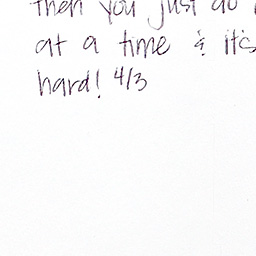 then you just do
at a time & it's
hard! 4/3